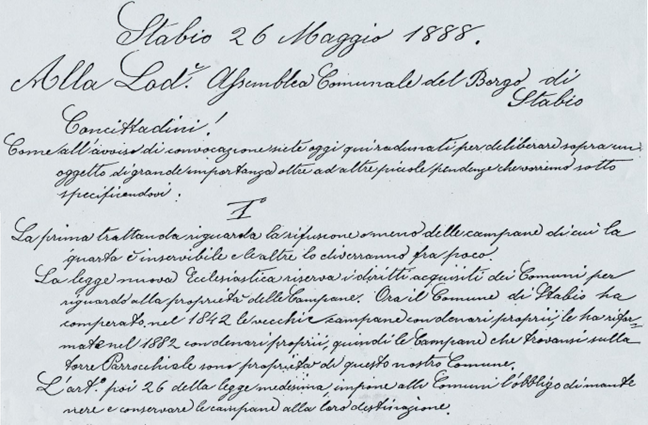 Stabio 26 Maggio 1888.
Alla Lod.e Assemblea Comunale del Borgo di
Stabio
Concittadini!
Come all'avviso di convocazione siete oggi qui radunati per deliberare sopra un
oggetto di grande importanza oltre ad altre piccole pendenze che verremo sotto
specificandovi:
Iº
La prima trattanda riguarda la rifusione o meno delle campane di cui la
quarta è inservibile e le altre lo diverranno fra poco.
La legge nuova Ecclesiastica riserva i diritti acquisiti dei Comuni per
riguardo alla proprietà delle Campane. Ora il Comune di Stabio ha
comperato nel 1842 le vecchie campane con denari proprii, le ha rifor-
mate nel 1882 con denari proprii, quindi le Campane che trovansi sulla
torre Parrocchiale sono proprietà di questo nostro Comune.
L'art.o poi 26 della legge medesima impone alli Comuni l'obbligo di mante
nere e conservare le campane alla loro destinazione.